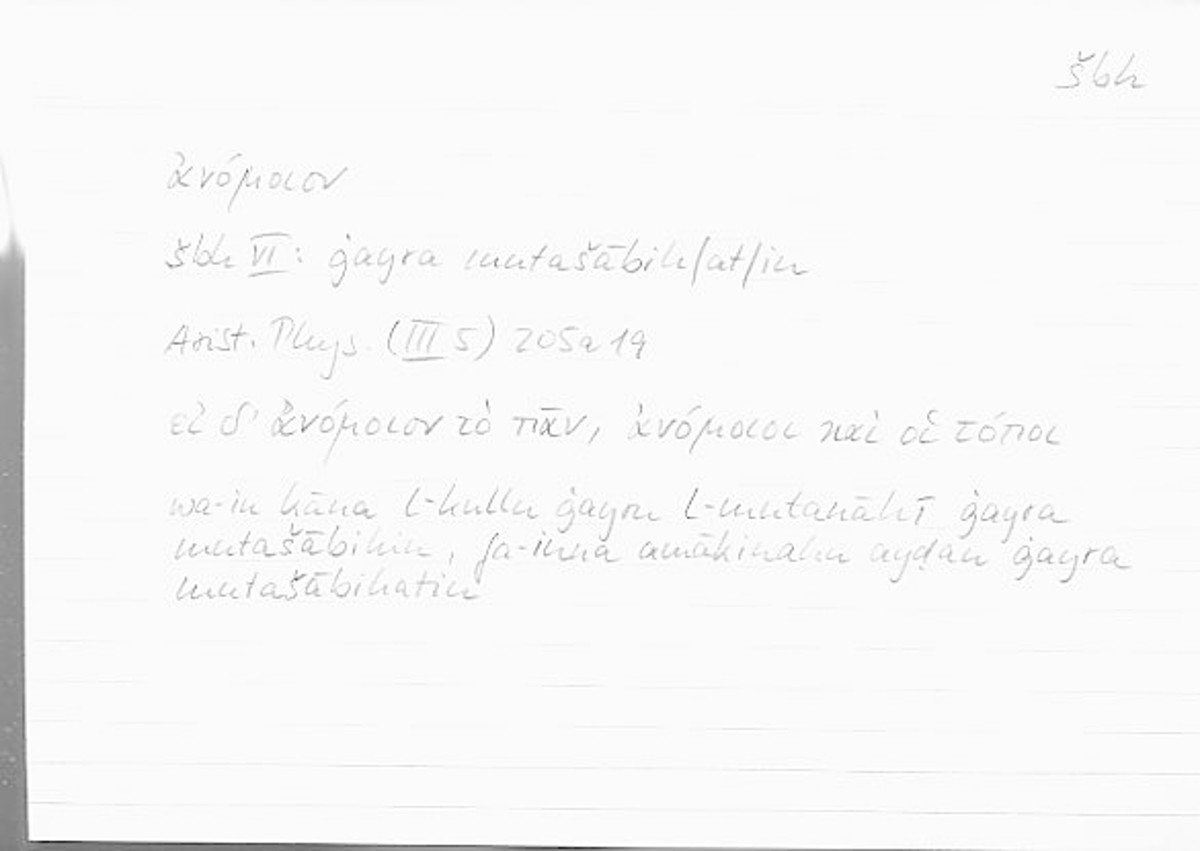 šbh
ἀνόμοιον
šbh VI: ġayra mutašābih/at/in
Arist. Phys. (III 5) 205a19
εἰ δ' ἀνόμοιον τὸ πᾶν, ἀνόμοιοι καὶ οἱ τόποι
wa-in kāna l-kullu ġayru l-mutanāhī ġayra
mutašābihin, fa-inna amākinahu ayḍan ġayra
mutašābihatin